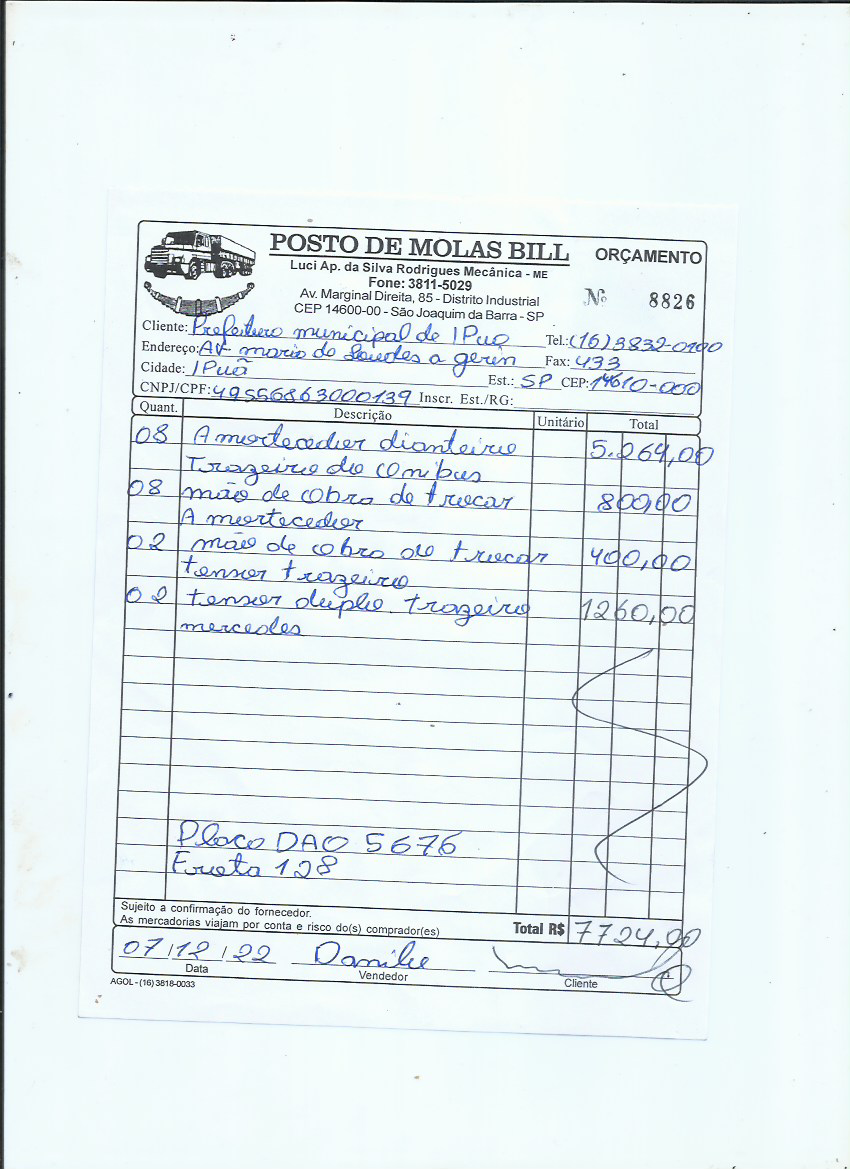 POSTO DE MOLAS BILL
ORÇAMENTO
Luci Ap. da Silva Rodrigues Mecânica - ME
Fone: 3811-5029
Av. Marginal Direita, 85 - Distrito Industrial
CEP 14600-00 - São Joaquim da Barra - SP
Nº 8826
Cliente: Prefeitura municipal de IPuã Tel.: (16) 3832-0100
Endereço: AV. maria de Lourdes a gerin Fax: 433
Cidade: IPuã Est.: SP CEP: 14610-000
CNPJ/CPF: 49556863000139 Inscr. Est./RG:
Quant. Descrição Unitário Total
08 Amortecedor dianteiro 5.264,00
Trazeiro do onibus
08 mão de obra de trocar 800,00
Amortecedor
02 mão de obra de trocar 400,00
tensor trazeiro
02 tensor duplo trazeiro 1260,00
mercedes
Placa DAO 5676
Frota 128
Sujeito a confirmação do fornecedor.
As mercadorias viajam por conta e risco do(s) comprador(es)
Total R$ 7724,00
07/12/22 Danilo
Data Vendedor Cliente
AGOL - (16) 3818-0033